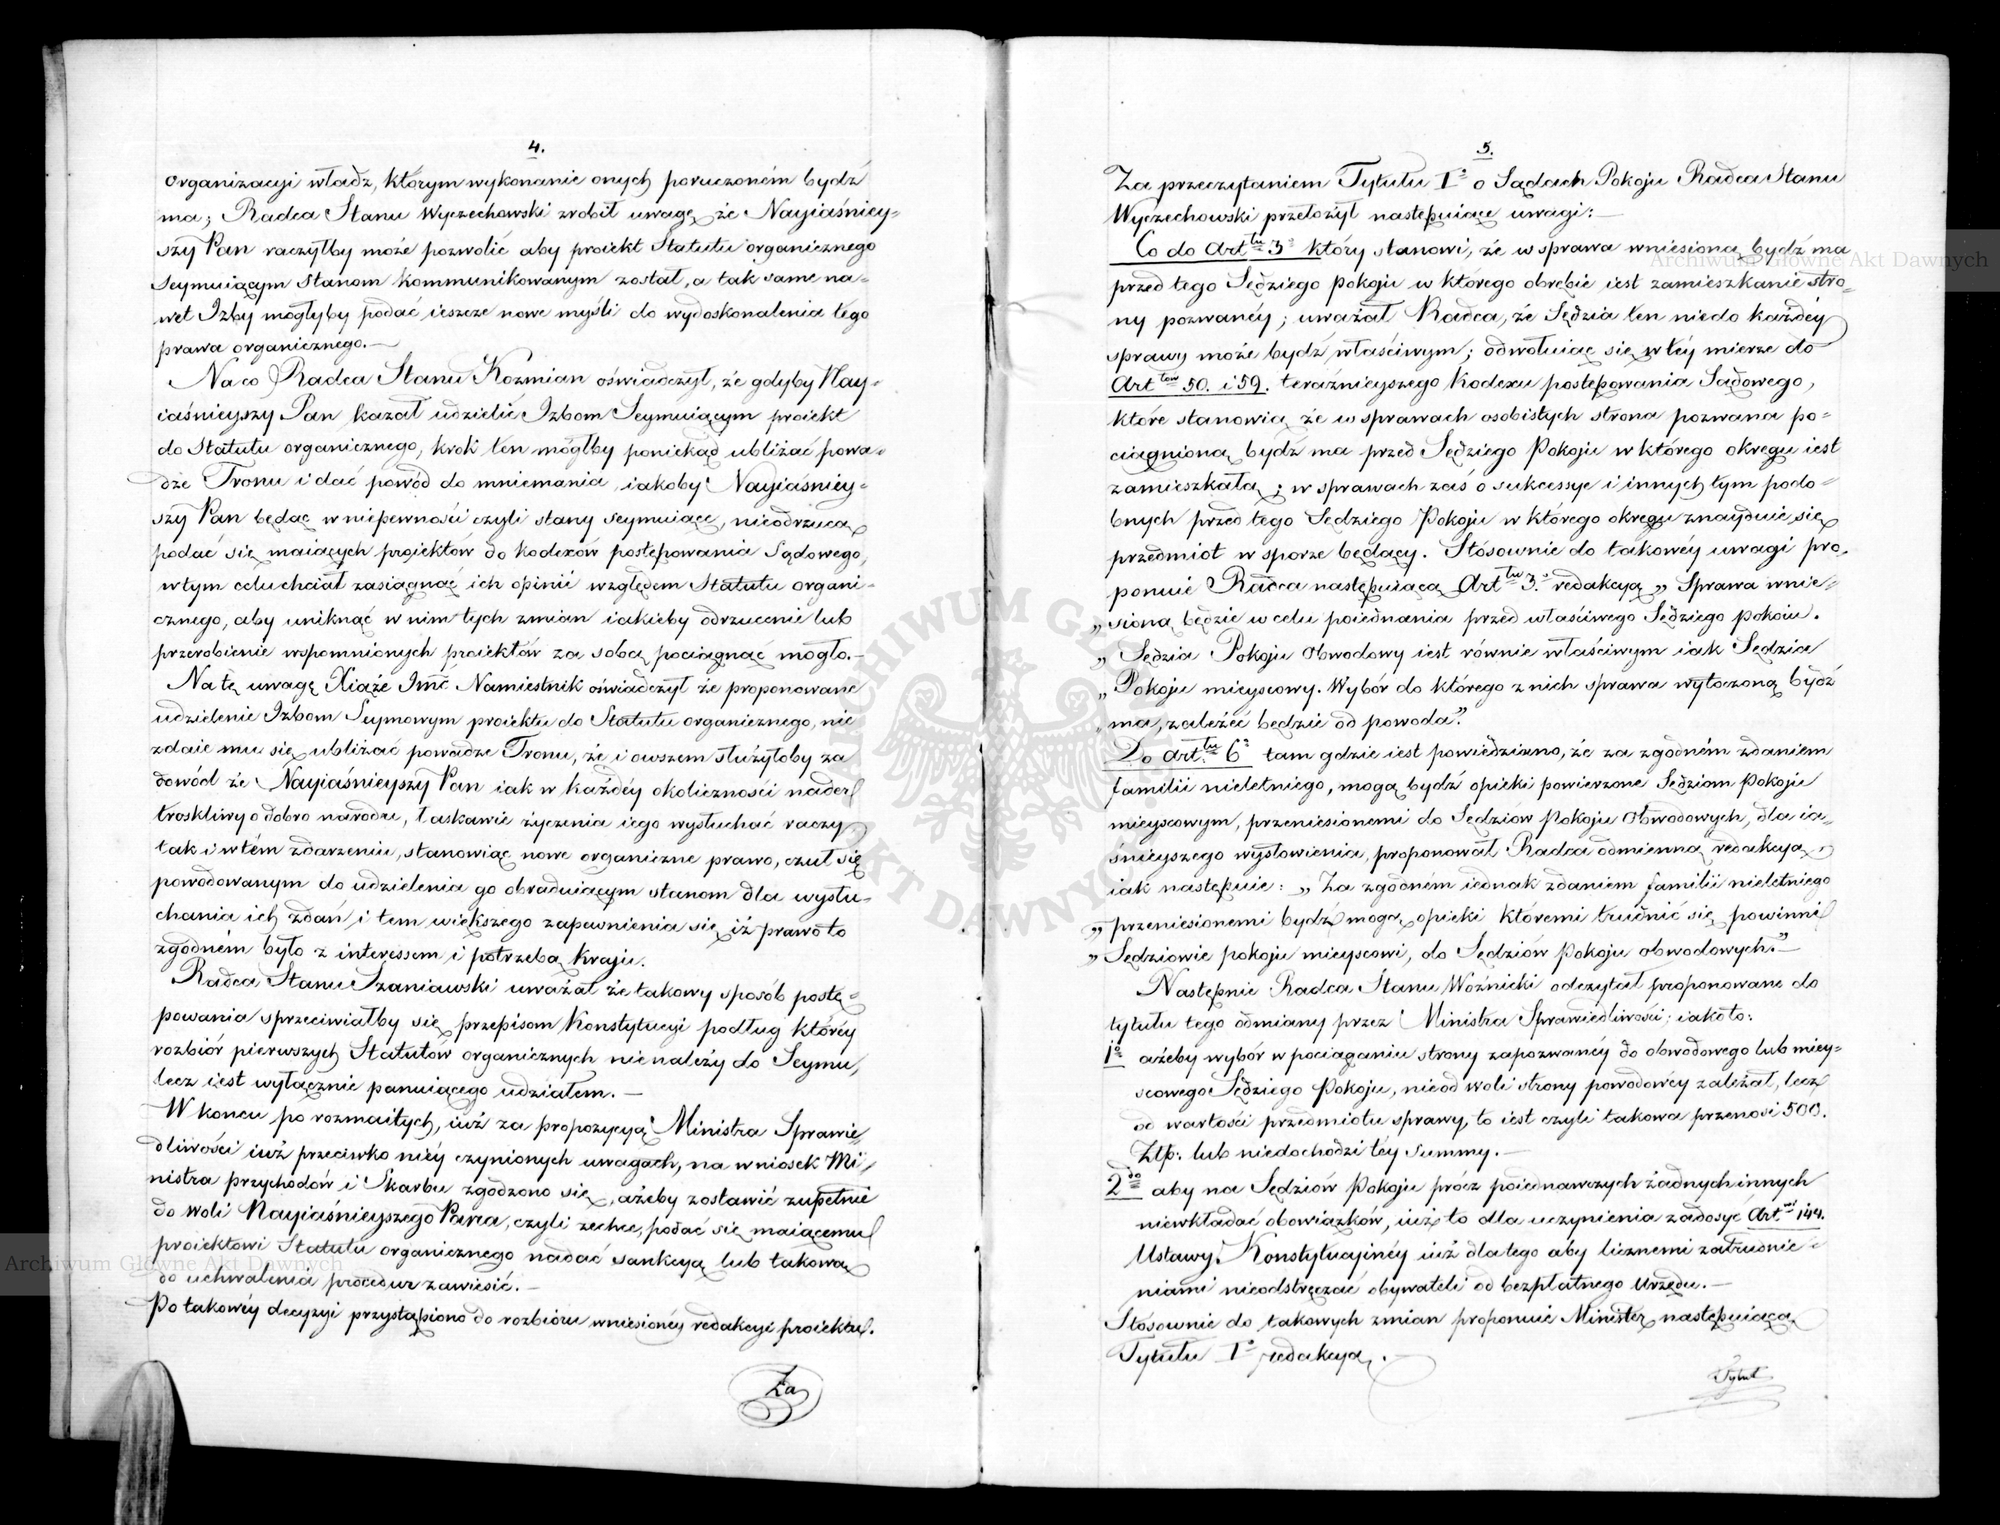 4.
organizacyi władz, którym wykonanie onych poruczoném bydź
ma; Radca Stanu Wyczechowski zrobił uwagę że Nayiaśniey-
szy Pan raczyłby może pozwolić aby proiekt Statutu organicznego
Seymuiącym Stanom kommunikowanym został, a tak same na-
wet Izby mogłyby podać ieszcze nowe myśli do wydoskonalenia tego
prawa organicznego.—
Na co Radca Stanu Kozmian oświadczył, że gdyby Nay-
iaśnieyszy Pan kazał udzielić Izbom Seymuiącym proiekt
do Statutu organicznego, krok ten mógłby poniekąd ubliżać powa-
dze Tronu i dać powód do mniemania, iakoby Nayiaśniey-
szy Pan będąc w niepewności czyli stany seymuiące, nieodrzucą
podać się maiących proiektów do kodexów postępowania Sądowego,
w tym celu chciał zasiągnąć ich opinii względem Statutu organi-
cznego, aby uniknąć w nim tych zmian iakieby odrzucenie lub
przerobienie wspomnionych proiektów za sobą pociągnąć mogło.—
Na tę uwagę Xiąże Jmć Namiestnik oświadczył że proponowane
udzielenie Izbom Seymowym proiektu do Statutu organicznego, nie
zdaie mu się ubliżać powadze Tronu, że i owszem służyłoby za
dowód że Nayiaśnieyszy Pan iak w każdéy okoliczności nader
troskliwy o dobro narodu, łaskawie życzenia iego wysłuchać raczy,
tak i w tém zdarzeniu, stanowiąc nowe organiczne prawo, czuł się
powodowanym do udzielenia go obraduiącym stanom dla wysłu-
chania ich zdań, i tem większego zapewnienia się iż prawo to
zgodném było z interessem i potrzebą Kraju.
Radca Stanu Szaniawski uważał że takowy sposób postę-
powania sprzeciwiałby się przepisom Konstytucyi podług któréy
rozbiór pierwszych Statutów organicznych nie należy do Seymu,
lecz iest wyłącznie panuiącego udziałem.—
W końcu po rozmaitych, iuż za propozycyą Ministra Sprawie-
dliwości iuż przeciwko niéy czynionych uwagach, na wniosek Mi-
nistra przychodów i Skarbu zgodzono się, ażeby zostawić zupełnie
do woli Nayiaśnieyszego Pana, czyli zechce, podać się maiącemu
proiektowi Statutu organicznego nadać sankcyą lub takową
do uchwalenia procedur zawiesić.—
Po takowéy decyzyi przystąpiono do rozbioru wniesionéy redakcyi proiektu.
Za
5.
Za przeczytaniem Tytułu I° o Sądach Pokoju Radca Stanu
Wyczechowski przełożył następuiące uwagi:—
Co do Art<sup>tu</sup> 3° który stanowi, że w sprawa wniesiona bydź ma
przed tego Sędziego Pokoju w którego obrębie iest zamieszkanie stro-
ny pozwanéy; uważał Radca, że Sędzia ten nie do każdéy
sprawy może bydź właściwym; odwołuiąc się w téy mierze do
Art<sup>tów</sup> 50. i 59. teraźnieyszego Kodexu postępowania Sądowego,
które stanowią że w sprawach osobistych strona pozwana po-
ciągnioną bydź ma przed Sędziego Pokoju w którego okręgu iest
zamieszkałą; w sprawach zaś o sukcessye i innych tym podo-
bnych przed tego Sędziego Pokoju w którego okręgu znayduie się
przedmiot w sporze będący. Stósownie do takowéy uwagi pro-
ponuie Radca następuiącą Art<sup>tu</sup> 3.° redakcyą „ Sprawa wnie-
„ sioną będzie w celu poiednania przed właściwego Sędziego pokoiu.
„ Sędzia Pokoju Obwodowy iest równie właściwym iak Sędzia
„ Pokoju mieyscowy. Wybór do którego z nich sprawa wytoczoną bydź
„ ma, zależéć będzie od powoda”.
Do art<sup>tu</sup> 6° tam gdzie iest powiedziano, że za zgodném zdaniem
familii nieletniego, mogą bydź opieki powierzone Sędziom Pokoju
mieyscowym, przeniesionemi do Sędziów Pokoju Obwodowych, dla ia-
śnieyszego wysłowienia, proponował Radca odmienną redakcyą,
iak następuie: „ Za zgodném iednak zdaniem familii nieletniego
„ przeniesionemi bydź mogą opieki któremi trudnić się powinni
„ Sędziowie pokoju mieyscowi, do Sędziów Pokoju obwodowych.”—
Następnie Radca Stanu Woźnicki odczytał proponowane do
tytułu tego odmiany przez Ministra Sprawiedliwości; iako to:
1° ażeby wybór w pociąganiu strony zapozwanéy do obwodowego lub miey-
scowego Sędziego Pokoju, nie od woli strony powodowéy zależał, lecz
od wartości przedmiotu sprawy, to iest czyli takowa przenosi 500.
Złp: lub niedochodzi téy summy.—
2<sup>do</sup> aby na Sędziów Pokoju prócz poiednawczych żadnych innych
niewkładać obowiązków, iuż to dla uczynienia zadosyć Art<sup>wi</sup> 144.
Ustawy Konstytucyinéy iuż dla tego aby licznemi zatrudnie-
niami nieodstręczać obywateli od bezpłatnego Urzędu.—
Stósownie do takowych zmian proponuie Minister następuiącą
Tytułu I° redakcyą.—
Tytuł
Archiwum Główne Akt Dawnych
Archiwum Główne Akt Dawnych
ARCHIWUM GŁÓWNE AKT DAWNYCH